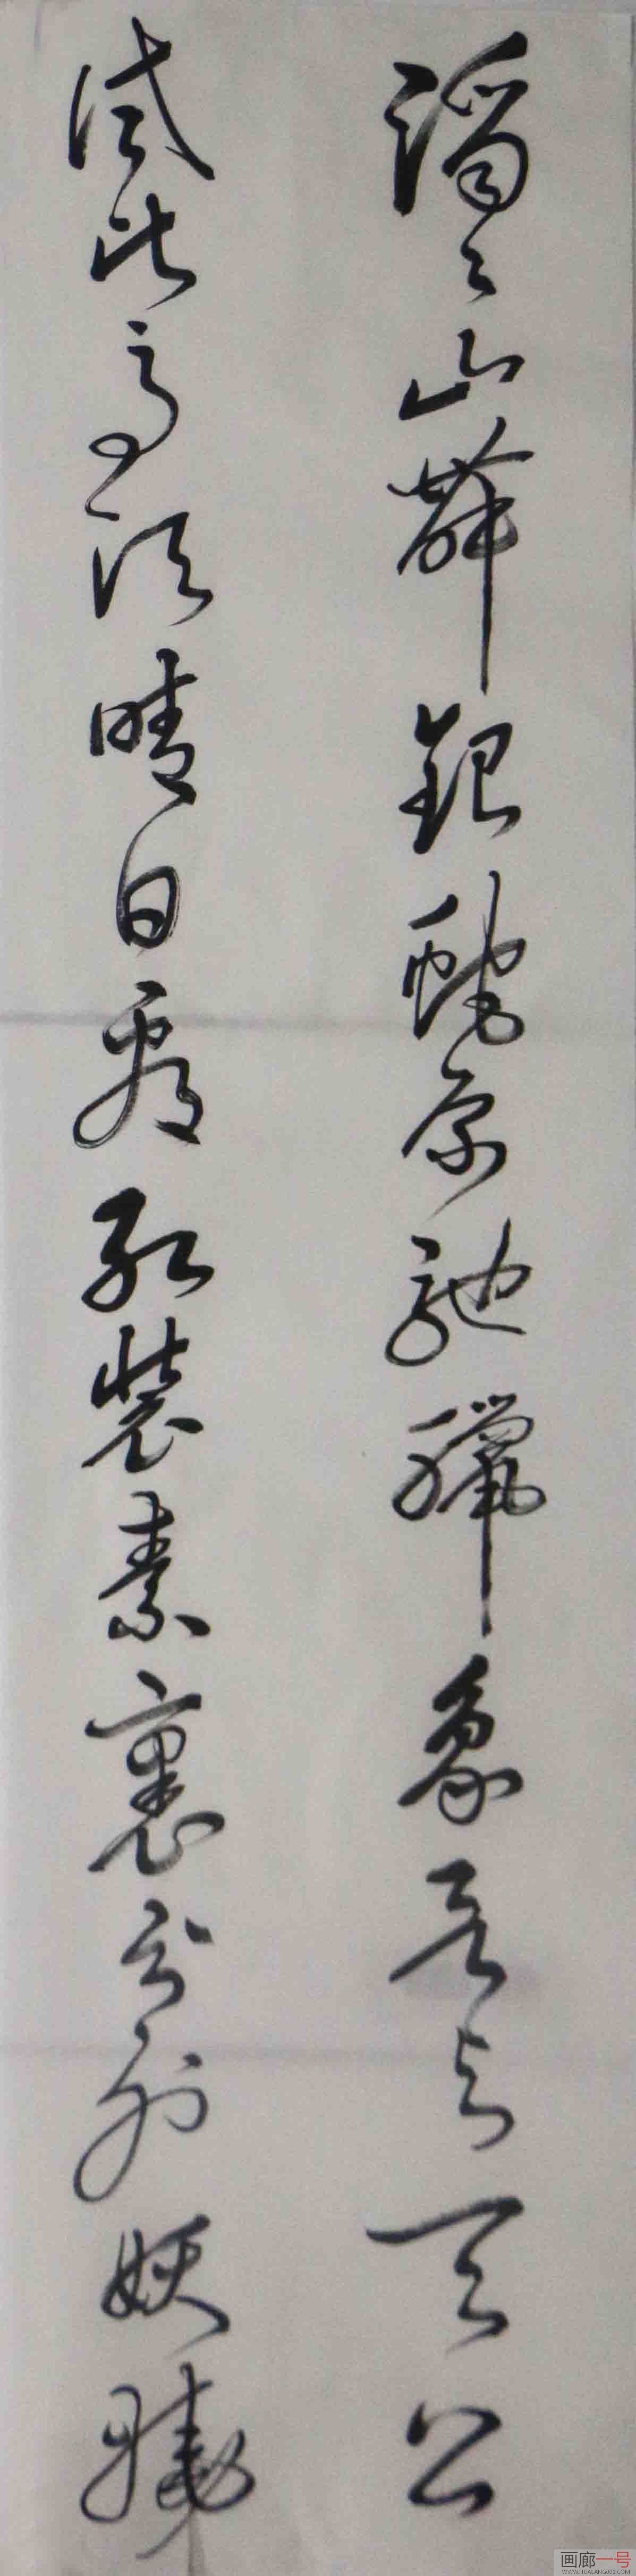 滔々山舞銀蛇原馳臘象欲与天公
試比高須晴日看紅裝素裹分外妖嬈
画廊一号